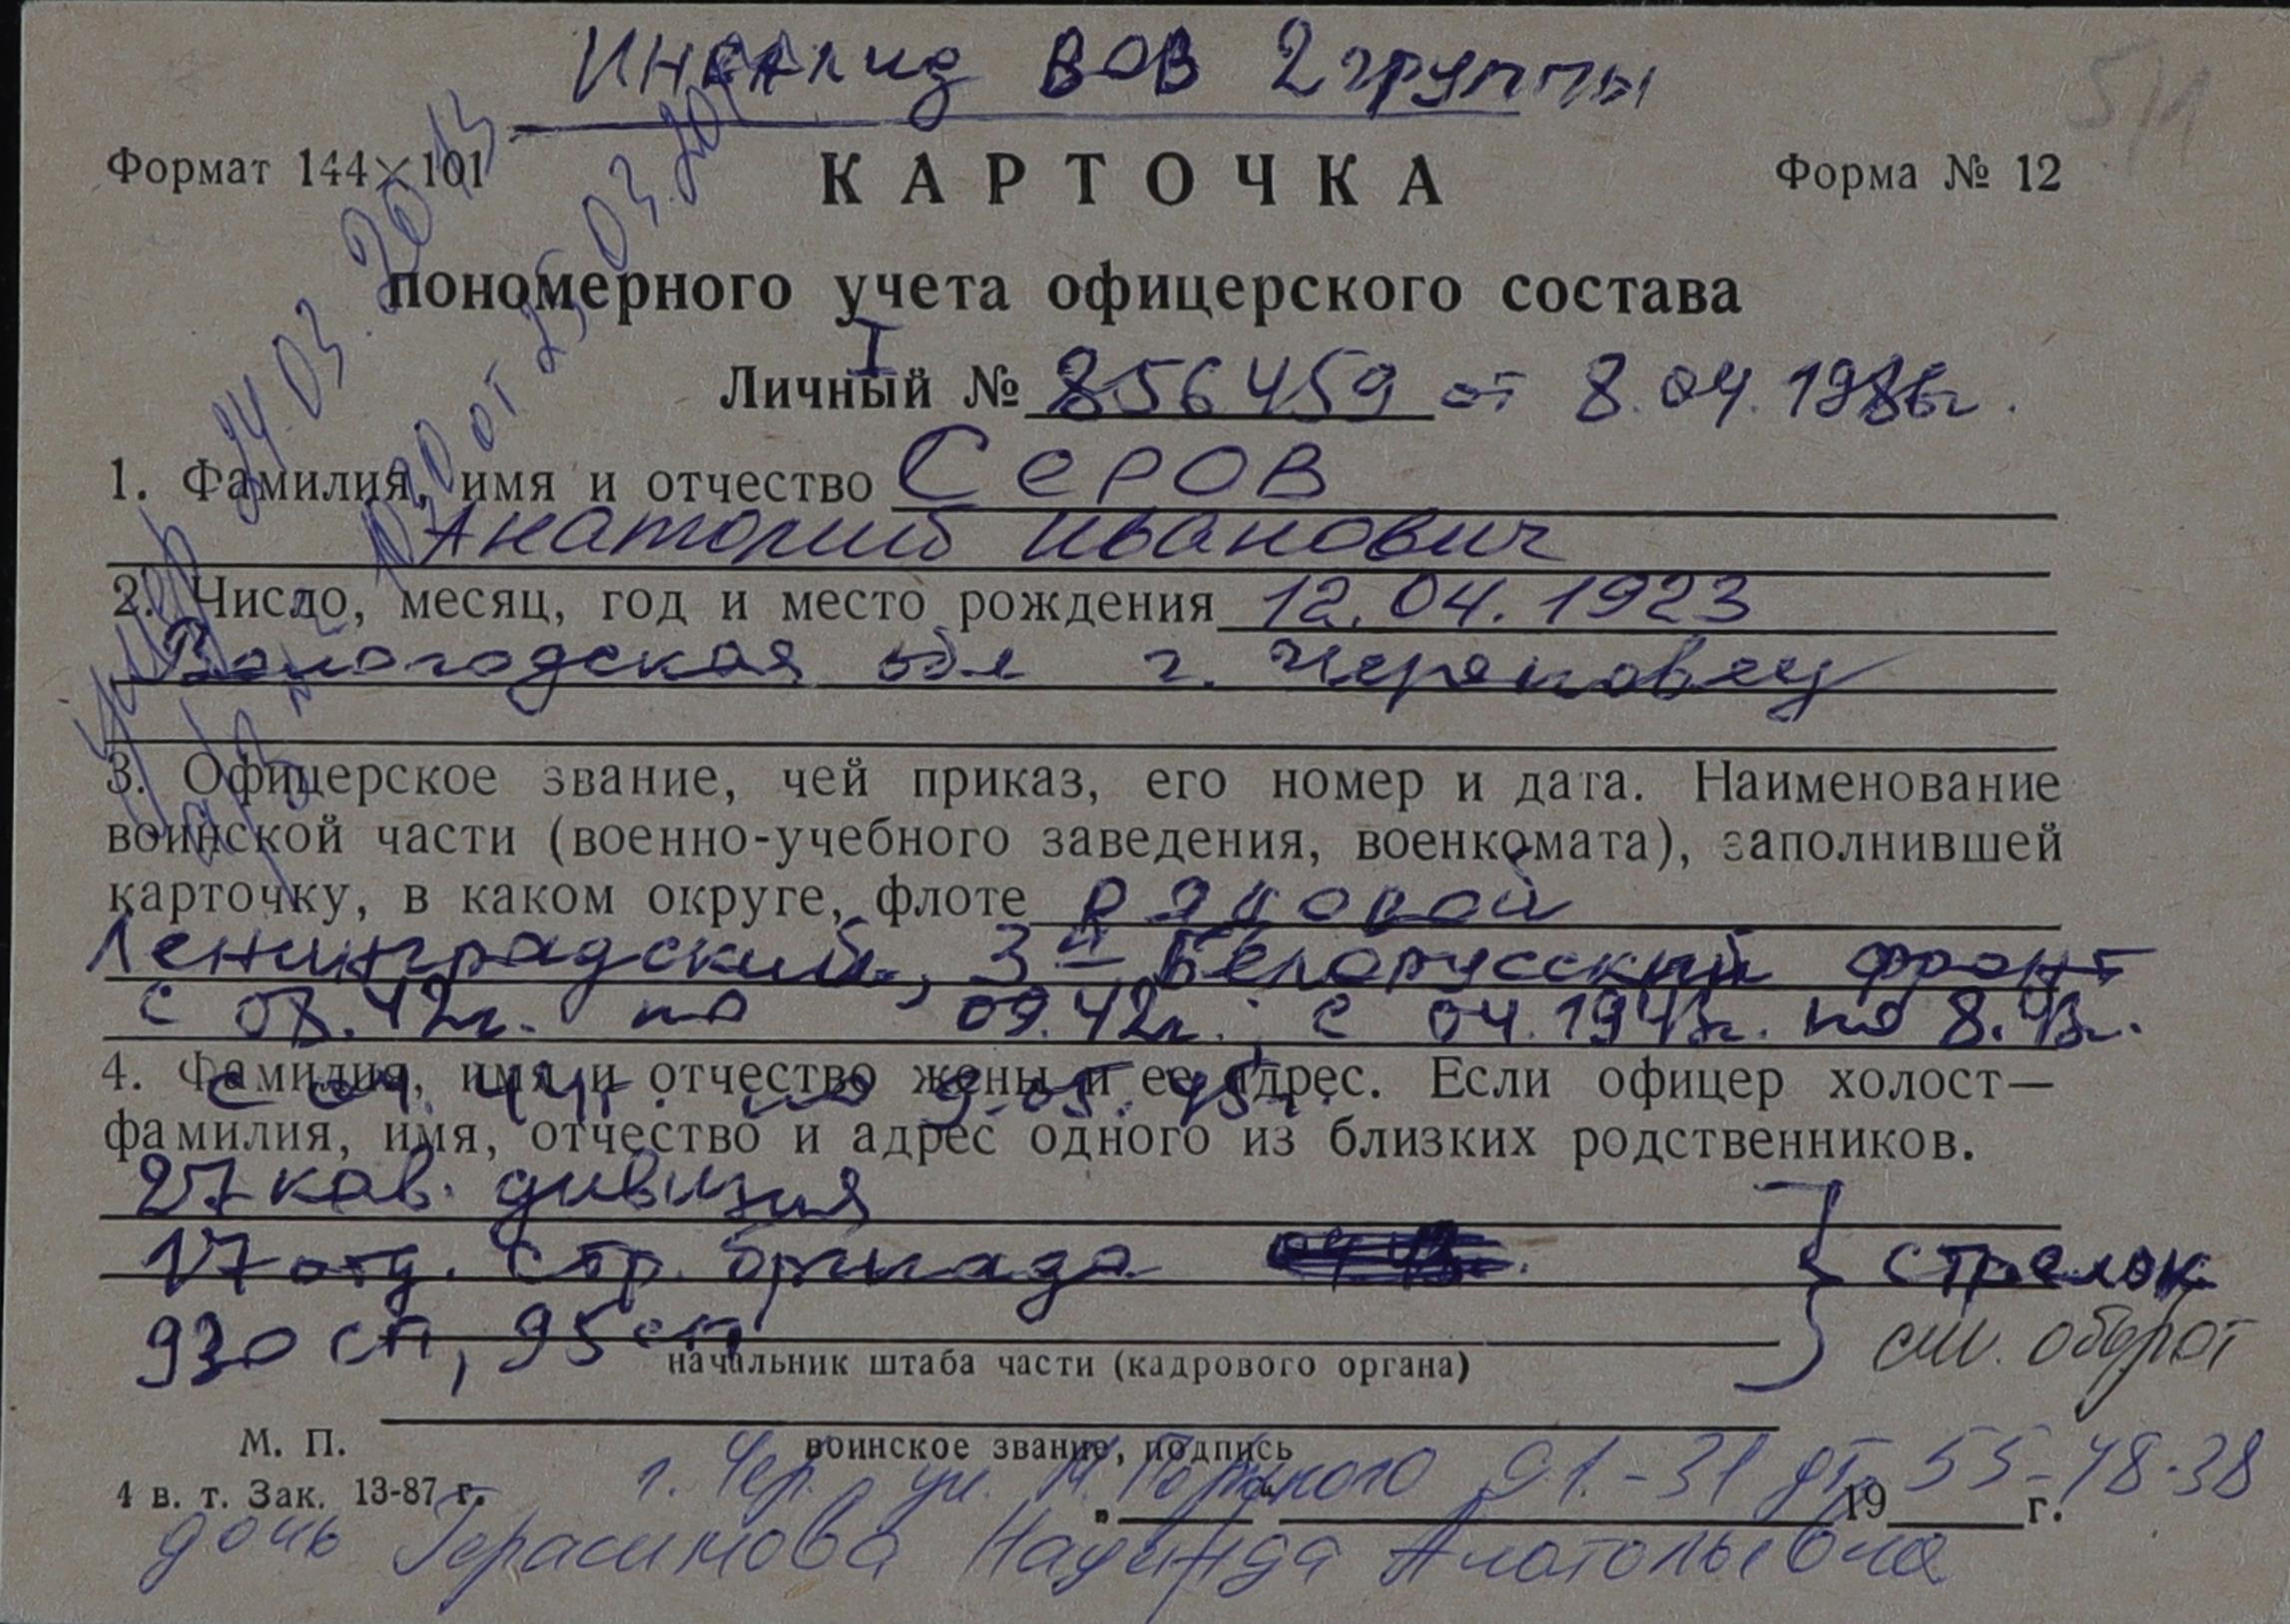 Инвалид ВОВ 2 группы
5/1
Формат 144×101
Форма № 12
КАРТОЧКА
пономерного учета офицерского состава
I
Личный № 856459 от 8.04.1986г.
1. Фамилия, имя и отчество Серов
Анатолий Иванович
2. Число, месяц, год и место рождения 12.04.1923
Вологодская обл г. Череповец
3. Офицерское звание, чей приказ, его номер и дата. Наименование
воинской части (военно-учебного заведения, военкомата), заполнившей
карточку, в каком округе, флоте рядовой
Ленинградский, 3й Белорусский фронт
с 08.42г. по 09.42г.; с 04.1943г. по 8.43г.
4. Фамилия, имя и отчество жены и ее адрес. Если офицер холост—
с 04.44г. по 9.05.45г.
фамилия, имя, отчество и адрес одного из близких родственников.
27 кав. дивизия
17 отд. стр. бригада
стрелок
930 сп, 95 сп
см. оборот
начальник штаба части (кадрового органа)
М. П.
воинское звание, подпись
г. Чер. ул. М. Горького 91-31 дт. 55-48-38
4 в. т. Зак. 13-87 г.
„ “ 19 г.
дочь Герасимова Надежда Анатольевна
Умер 14.03.2013
№ 20 от 25.03.201